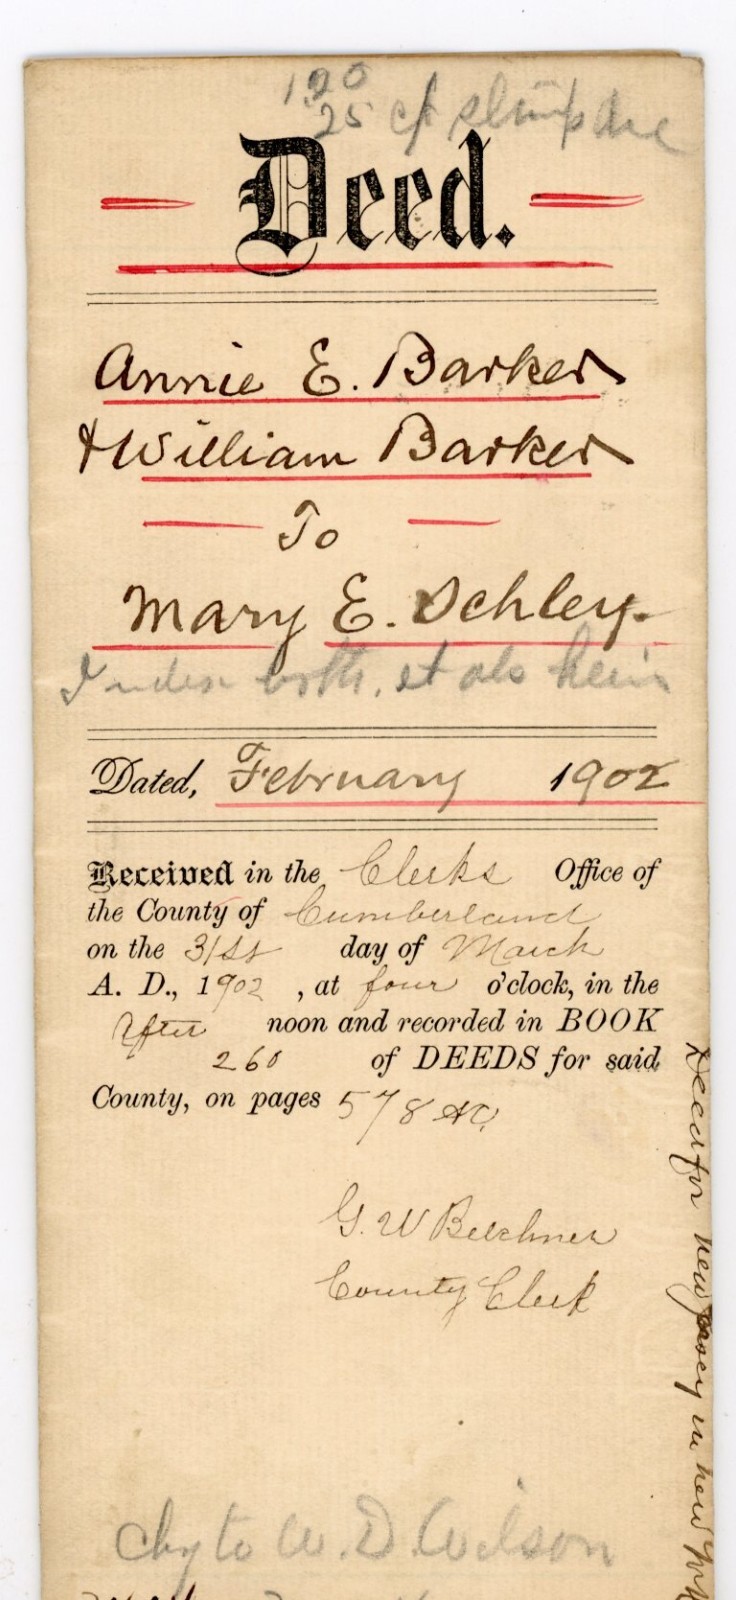 1.20
25 c/
Deed.
Annie E. Barker
& William Barker
To
Mary E. Schley.
et als heir
Dated, February 1902
Received in the Clerks Office of
the County of Cumberland
on the 31st day of March
A. D., 1902, at four o'clock, in the
After noon and recorded in BOOK
260 of DEEDS for said
County, on pages 578 &c,
G. W Belchner
County Clerk
chg to W. D. Wilson
new jersey in new York